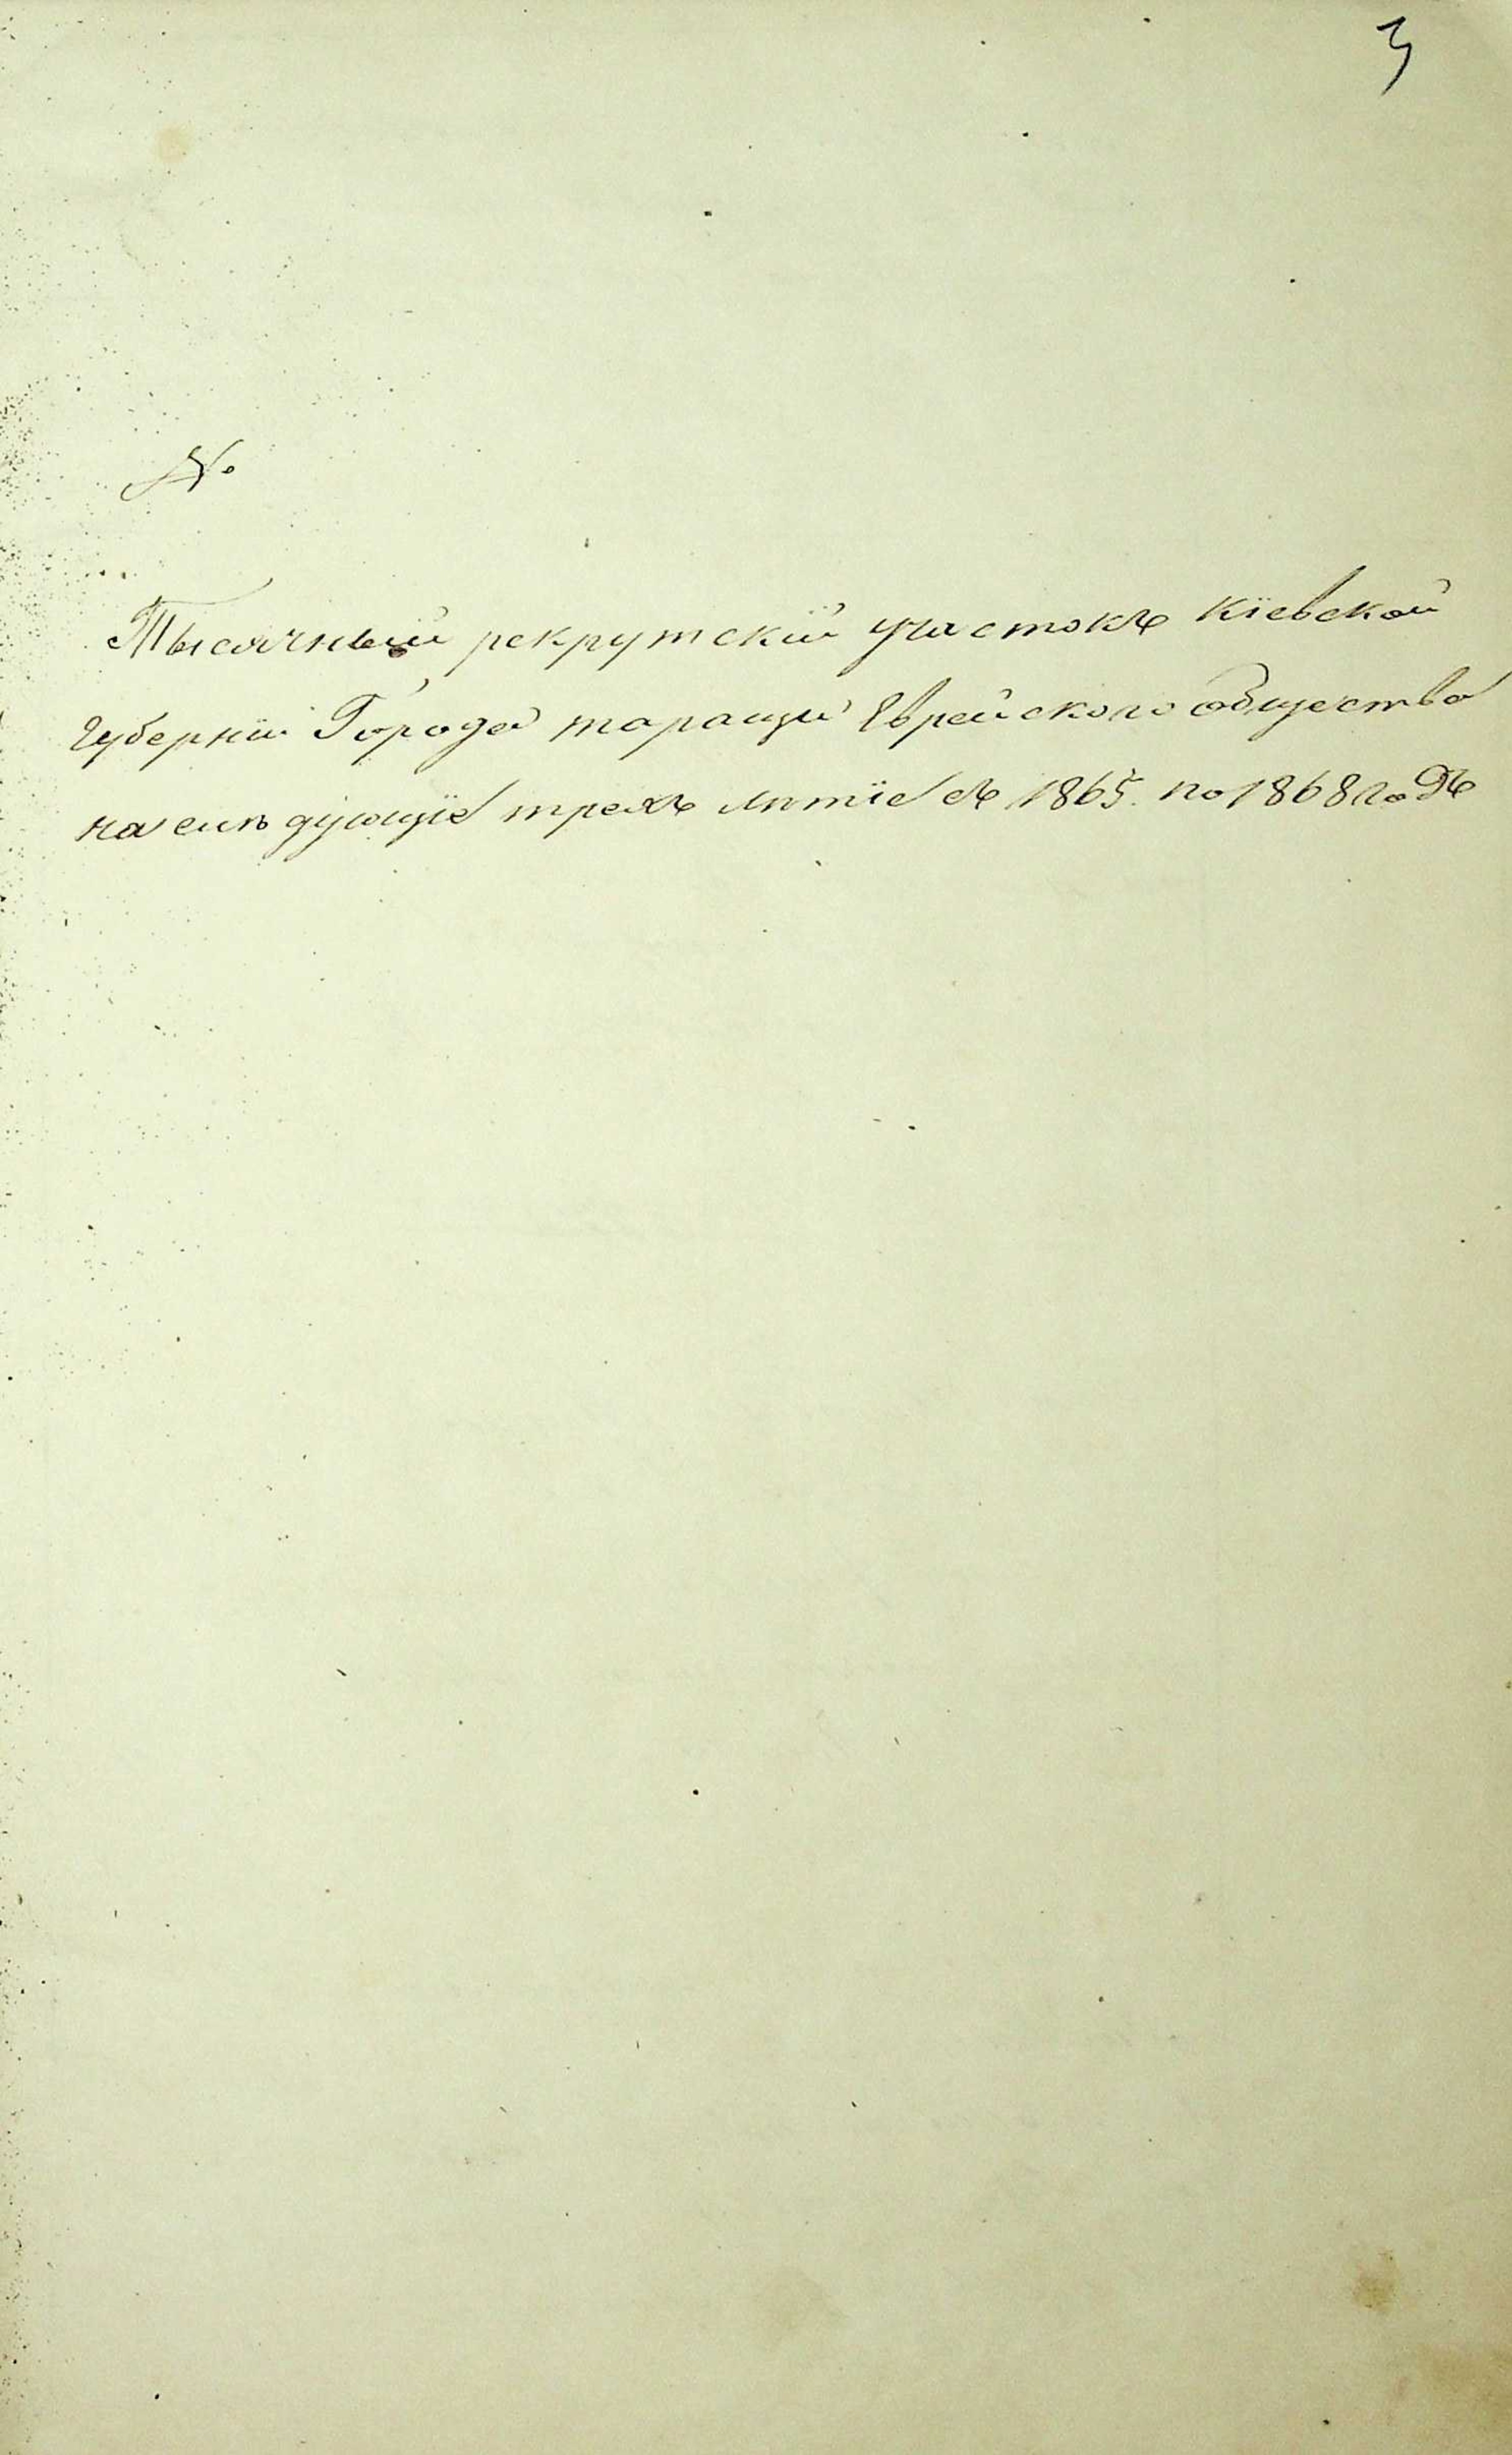 3
№
Тысячный рекрутскій участокъ Кіевской
Губерніи Города таращи Еврейского общества
на слѣдующіе трехъ лѣтіе съ 1865. по 1868 годъ